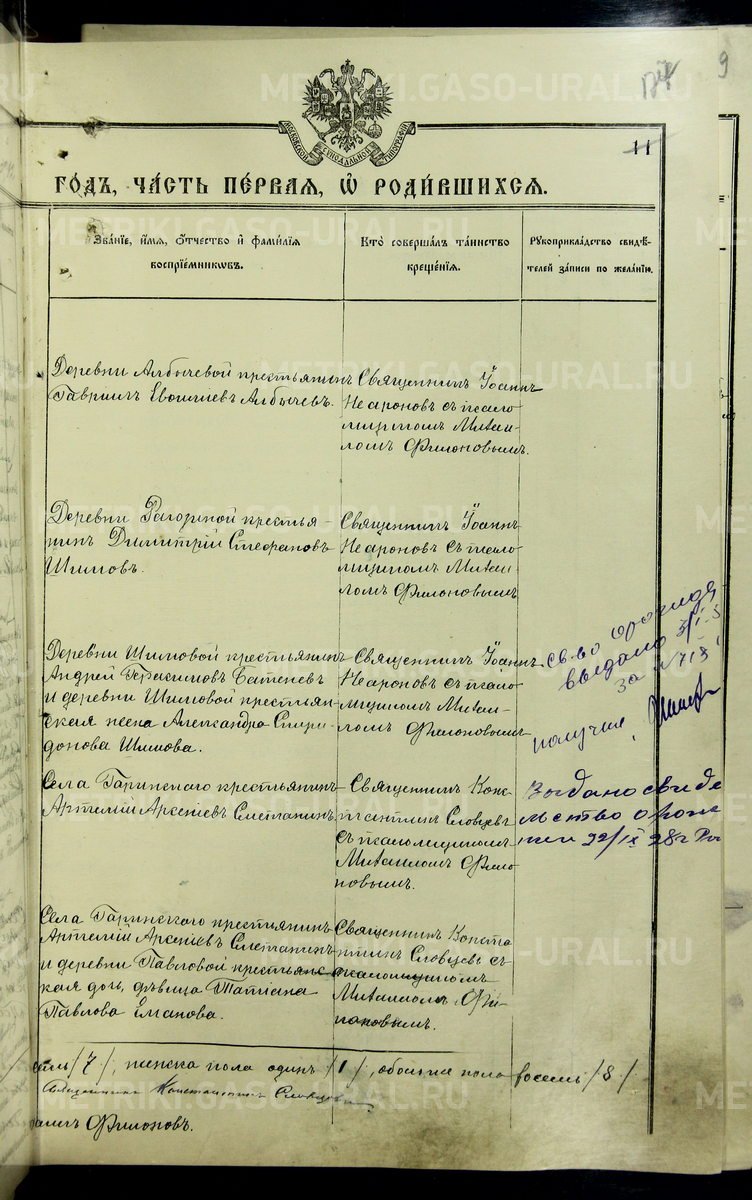 METRIKI.GASO-URAL.RU
9
МОСКОВСКОЙ СѴНОДАЛЬНОЙ ТИПОГРАФІИ
11
ГОДЪ, ЧАСТЬ ПЕРВАЯ, Ѡ РОДИВШИХСѦ.
Званіе, имя, отчество и фамилія
воспріемниковъ.
Кто совершалъ таинство
крещенія.
Рукоприкладство свидѣ-
телей записи по желанію.
Деревни Албычевой крестьянинъ
Гавріилъ Евѳиміевъ Албычевъ.
Священникъ Іоаннъ
Неароновъ съ псало
мщикомъ Михаи-
ломъ Филоновымъ.
Деревни Рагозиной крестья-
нинъ Димитрій Стефановъ
Шимовъ.
Священникъ Іоаннъ
Неароновъ съ псало
мщикомъ Михаи-
ломъ Филоновымъ
Деревни Шимовой крестьянинъ
Андрей Герасимовъ Батеневъ
и деревни Шимовой крестьян-
ская жена Александра Спири
донова Шимова.
Священникъ Іоаннъ
Неароновъ съ псало
мщикомъ Михаи-
ломъ Филоновымъ
св-во о рожде
выдано
за №
получил
Села Гаринскаго крестьянинъ
Артемій Арсеніевъ Сметанинъ
Священникъ Конс
тантинъ Словцевъ
съ псаломщикомъ
Михаиломъ Фило
новымъ.
Выдано свиде
льство о рожде
нии 22/IX 28 г
Села Гаринскаго крестьянинъ
Артемій Арсеніевъ Сметанинъ
и деревни Павловой крестьянс
кая дочь, дѣвица Татіана
Павлова Еманова.
Священникъ Конста
нтинъ Словцевъ съ
псаломщикомъ
Михаиломъ Фи-
лоновымъ.
семь /7/, женска пола одинъ /1/, обоего пола восемь /8/
Священникъ Константинъ Словцовъ
Филоновъ.